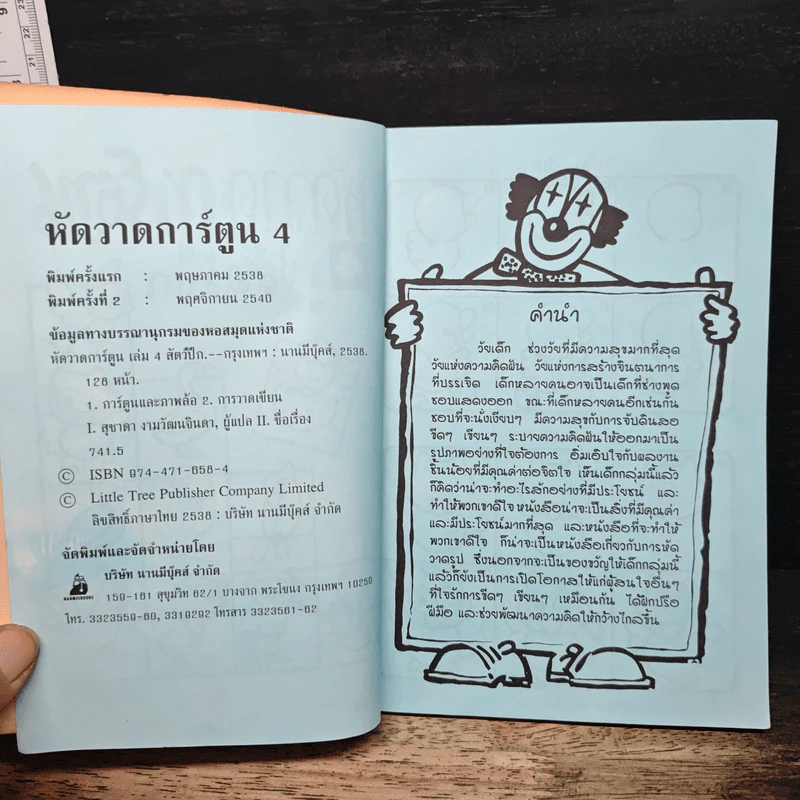 หัดวาดการ์ตูน 4
พิมพ์ครั้งแรก : พฤษภาคม 2538
พิมพ์ครั้งที่ 2 : พฤศจิกายน 2540
ข้อมูลทางบรรณานุกรมของหอสมุดแห่งชาติ
หัดวาดการ์ตูน เล่ม 4 สัตว์ปีก.--กรุงเทพฯ : นานมีบุ๊คส์, 2538.
128 หน้า.
1. การ์ตูนและภาพล้อ 2. การวาดเขียน
I. สุชาดา งามวัฒนจินดา, ผู้แปล II. ชื่อเรื่อง
741.5
© ISBN 974-471-658-4
© Little Tree Publisher Company Limited
ลิขสิทธิ์ภาษาไทย 2538 : บริษัท นานมีบุ๊คส์ จำกัด
จัดพิมพ์และจัดจำหน่ายโดย
บริษัท นานมีบุ๊คส์ จำกัด
NANMEEBOOKS
159-161 สุขุมวิท 62/1 บางจาก พระโขนง กรุงเทพฯ 10250
โทร. 3323559-60, 3319292 โทรสาร 3323561-62
คำนำ
วัยเด็ก ช่วงวัยที่มีความสุขมากที่สุด
วัยแห่งความคิดฝัน วัยแห่งการสร้างจินตนาการ
ที่บรรเจิด เด็กหลายคนอาจเป็นเด็กที่ช่างพูด
ชอบแสดงออก ขณะที่เด็กหลายคนอีกเช่นกัน
ชอบที่จะนั่งเงียบๆ มีความสุขกับการจับดินสอ
ขีดๆ เขียนๆ ระบายความคิดฝันให้ออกมาเป็น
รูปภาพอย่างที่ใจต้องการ อิ่มเอิบใจกับผลงาน
ชิ้นน้อยที่มีคุณค่าต่อจิตใจ เห็นเด็กกลุ่มนี้แล้ว
ก็คิดว่าน่าจะทำอะไรสักอย่างที่มีประโยชน์ และ
ทำให้พวกเขาดีใจ หนังสือน่าจะเป็นสิ่งที่มีคุณค่า
และมีประโยชน์มากที่สุด และหนังสือที่จะทำให้
พวกเขาดีใจ ก็น่าจะเป็นหนังสือเกี่ยวกับการหัด
วาดรูป ซึ่งนอกจากจะเป็นของขวัญให้เด็กกลุ่มนี้
แล้วก็ยังเป็นการเปิดโอกาสให้แก่ผู้สนใจอื่นๆ
ที่ใจรักการขีดๆ เขียนๆ เหมือนกัน ได้ฝึกปรือ
ฝีมือ และช่วยพัฒนาความคิดให้กว้างไกลขึ้น